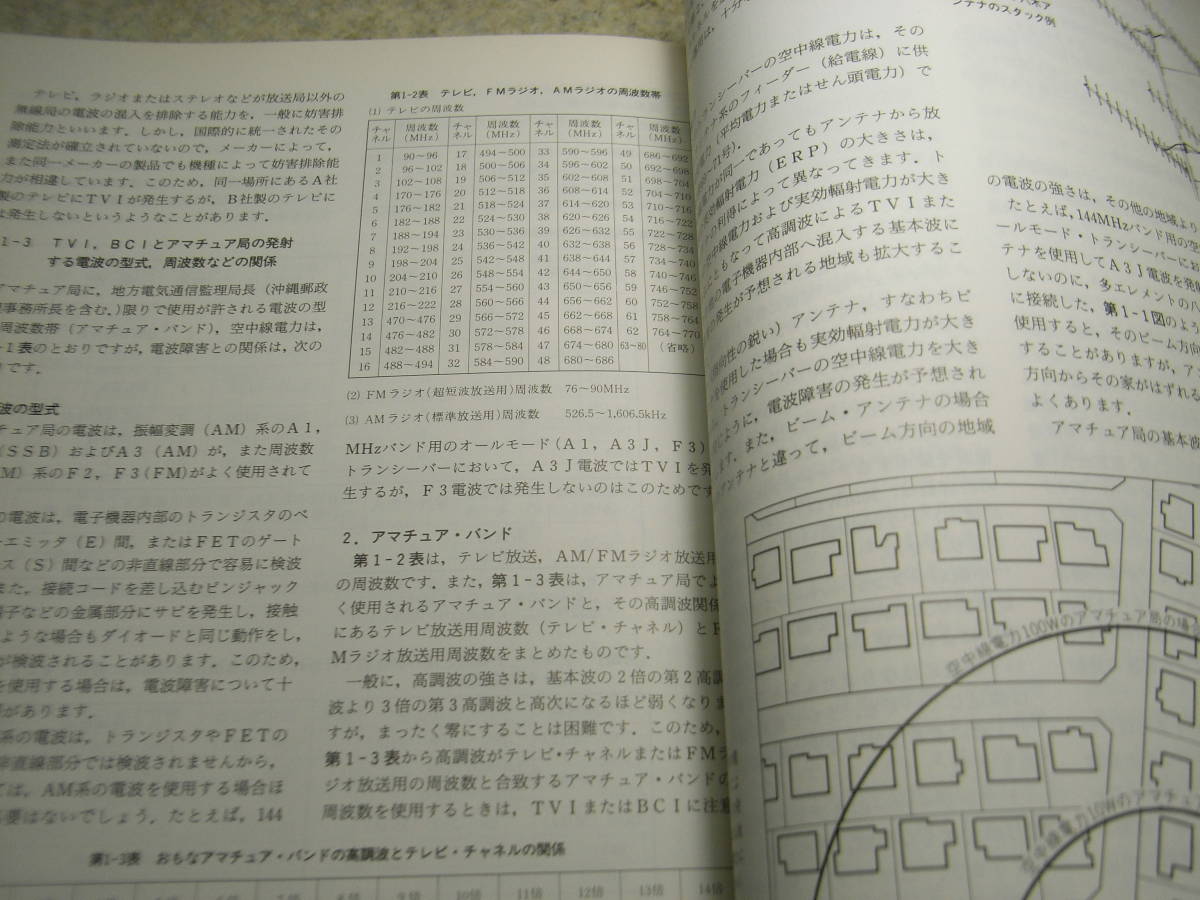 テレビ，ラジオまたはステレオなどが放送局以外の
無線局の電波の混入を排除する能力を，一般に妨害排
除能力といいます．しかし，国際的に統一されたその
測定法が確立されていないので，メーカーによって，
また同一メーカーの製品でも機種によって妨害排除能
力が相違しています．このため，同一場所にあるA社
製のテレビにTVIが発生するが，B社製のテレビに
は発生しないというようなことがあります．
1-3 TVI，BCIとアマチュア局の発射
する電波の型式，周波数などの関係
アマチュア局に，地方電気通信監理局長（沖縄郵政
事務所長を含む．）限りで使用が許される電波の型
周波数帯（アマチュア・バンド），空中線電力は，
-1表のとおりですが，電波障害との関係は，次の
りです．
波の型式
チュア局の電波は，振幅変調（AM）系のA1，
（SSB）およびA3（AM）が，また周波数
M）系のF2，F3(FM)がよく使用されて
の電波は，電子機器内部のトランジスタのベ
エミッタ（E）間，またはFETのゲート
ス（S）間などの非直線部分で容易に検波
また，接続コードを差し込むピンジャック
端子などの金属部分にサビを発生し，接触
ような場合もダイオードと同じ動作をし，
が検波されることがあります．このため，
を使用する場合は，電波障害について十
があります．
系の電波は，トランジスタやFETの
非直線部分では検波されませんから，
ては，AM系の電波を使用する場合ほ
必要はないでしょう．たとえば，144
第1-2表 テレビ，FMラジオ，AMラジオの周波数帯
(1) テレビの周波数
チャネル 周波数(MHz) チャネル 周波数(MHz) チャネル 周波数(MHz) チャネル 周波数(MHz)
1 90～96 17 494～500 33 590～596 49 686～692
2 96～102 18 500～506 34 596～602 50 692～698
3 102～108 19 506～512 35 602～608 51 698～704
4 170～176 20 512～518 36 608～614 52 704～710
5 176～182 21 518～524 37 614～620 53 710～716
6 182～188 22 524～530 38 620～626 54 716～722
7 188～194 23 530～536 39 626～632 55 722～728
8 192～198 24 536～542 40 632～638 56 728～734
9 198～204 25 542～548 41 638～644 57 734～740
10 204～210 26 548～554 42 644～650 58 740～746
11 210～216 27 554～560 43 650～656 59 746～752
12 216～222 28 560～566 44 656～662 60 752～758
13 470～476 29 566～572 45 662～668 61 758～764
14 476～482 30 572～578 46 668～674 62 764～770
15 482～488 31 578～584 47 674～680 63～80 （省略）
16 488～494 32 584～590 48 680～686
(2) FMラジオ(超短波放送用)周波数 76～90MHz
(3) AMラジオ(標準放送用)周波数 526.5～1,606.5kHz
MHzバンド用のオールモード（A1，A3J，F3）
トランシーバーにおいて，A3J電波ではTVIを発
生するが，F3電波では発生しないのはこのためです
2．アマチュア・バンド
第1-2表は，テレビ放送，AM/FMラジオ放送用
の周波数です．また，第1-3表は，アマチュア局でよ
く使用されるアマチュア・バンドと，その高調波関係
にあるテレビ放送用周波数（テレビ・チャネル）とF
Mラジオ放送用周波数をまとめたものです．
一般に，高調波の強さは，基本波の2倍の第2高調
波より3倍の第3高調波と高次になるほど弱くなりま
すが，まったく零にすることは困難です．このため，
第1-3表から高調波がテレビ・チャネルまたはFMラ
ジオ放送用の周波数と合致するアマチュア・バンドの
周波数を使用するときは，TVIまたはBCIに注意
第1-3表 おもなアマチュア・バンドの高調波とテレビ・チャネルの関係
7倍 8倍 9倍 10倍 11倍 12倍 13倍 14倍
ンテナのスタック例
ンシーバーの空中線電力は，その
テナ系のフィーダー（給電線）に供
（平均電力またはせん頭電力）で
71号)．
力が同一であってもアンテナから放
効輻射電力（ERP）の大きさは，
の利得によって異なってきます．ト
中線電力および実効輻射電力が大き
ともなって高調波によるTVIまた
の電子機器内部へ混入する基本波に
発生が予想される地域も拡大するこ
指向性の鋭い）アンテナ，すなわちビ
を使用した場合も実効輻射電力が大き
トランシーバーの空中線電力を大き
ように，電波障害の発生が予想され
ます．また，ビーム・アンテナの場合
アンテナと違って，ビーム方向の地域
の電波の強さは，その他の地域より
たとえば，144MHzバンド用の
ールモード・トランシーバーにお
テナを使用してA3J電波を発射
しないのに，多エレメントの
に接続した，第1-1図のよう
使用すると，そのビーム方向
することがありますが，ア
方向からその家がはずれる
よくあります．
アマチュア局の基本波
空中線電力100Wのアマチュア局の場合
空中線電力10Wのアマチュア